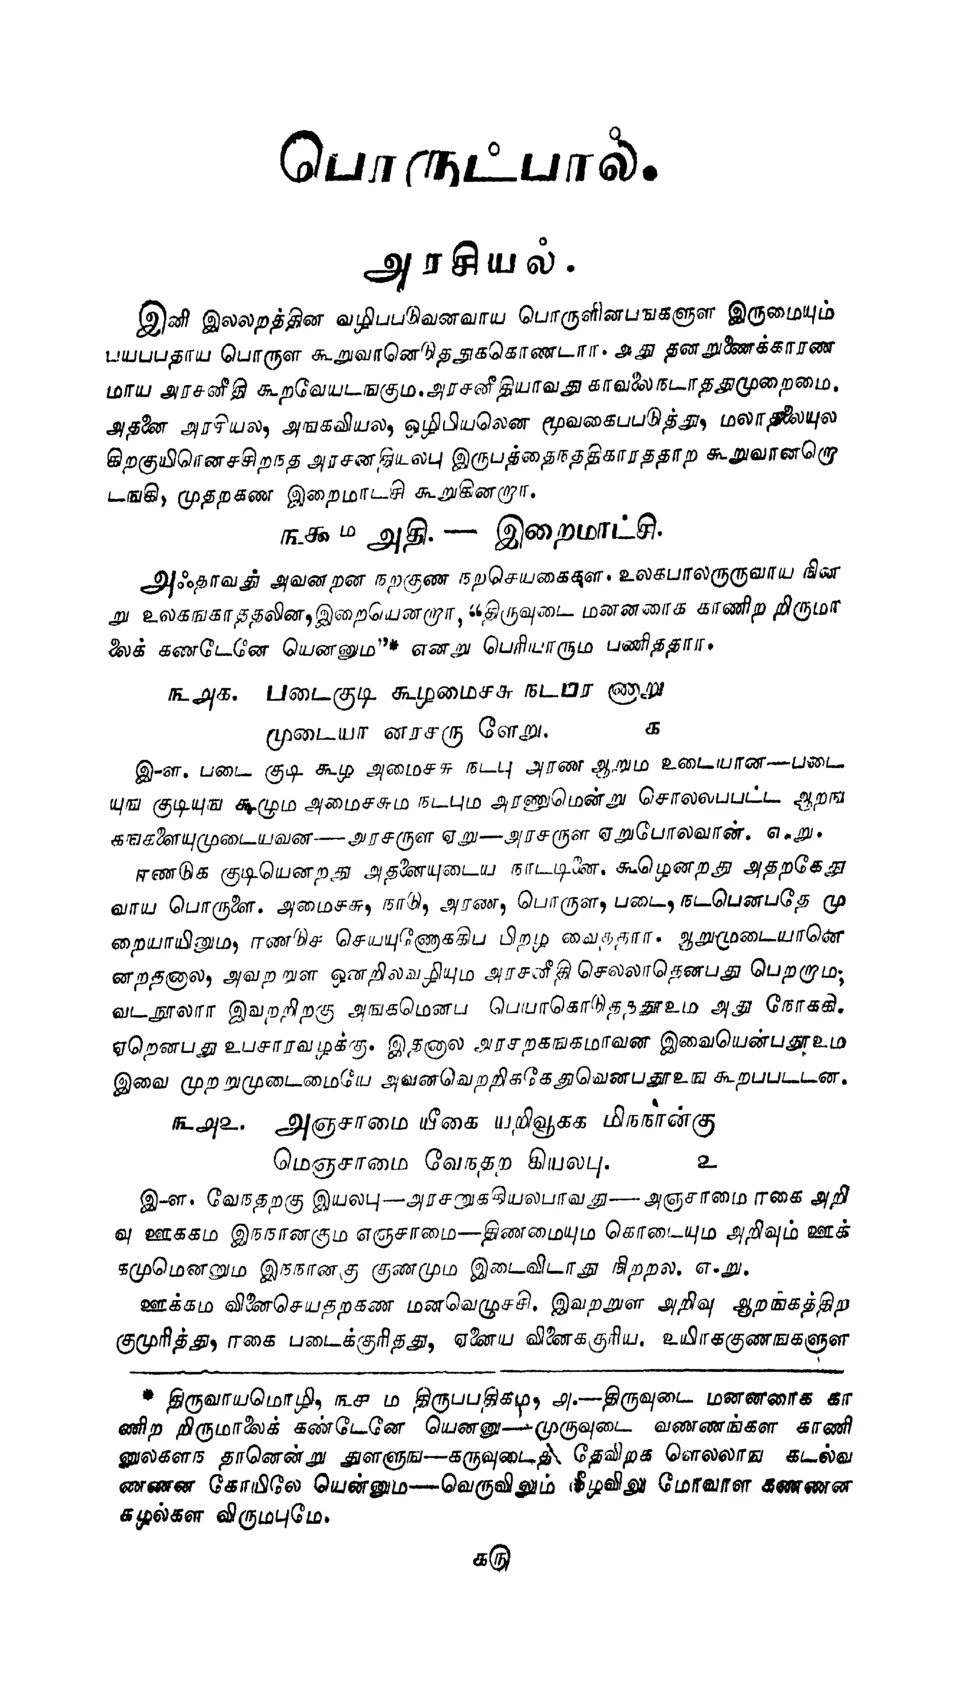 பொருட்பால்.
அரசியல்.
இனி இலலறத்தின வழிபபடுவனவாய பொருளினபஙகளுள இருமையும்
பயபபதாய பொருள கூறுவானெடுததுககொணடார. அது தனறுணைக்காரண
மாய அரசனீதி கூறவேயடஙகும. அரசனீதியாவது காவலைநடாததுமுறைமை.
அதனை அரசியல, அஙகவியல, ஒழிபியலென மூவகைபபடுத்து, மலாதலையுல
கிறகுயிரெனசசிறநத அரசனதியலபு இருபத்தைநததிகாரததாற கூறுவானறொ
டஙகி, முதறகண இறைமாடசி கூறுகினறார.
௩௯ ம அதி. — இறைமாட்சி.
அஃதாவது அவனறன நறகுண நறசெயகைகள. உலகபாலருருவாய நின
று உலகஙகாததலின, இறையெனறார, "திருவுடை மனனரைக காணிற றிருமா
லைக் கணடேனே யெனனும"* எனறு பெரியாரும பணிததார.
௩௮௧. படைகுடி கூழமைசசு நடபர ணாறு
முடையா னரசரு ளேறு. ௧
இ-ள. படை குடி கூழ அமைசசு நடபு அரண ஆறும உடையான—படை
யுங குடியுங கூழும அமைசசும நடபும அரணுமென்று சொலலபபட்ட ஆறங
கஙகளையுமுடையவன—அரசருள ஏறு—அரசருள ஏறுபோலவான். எ-று.
ஈணடுக குடியெனறது அதனையுடைய நாடடினை. கூழெனறது அதறகேது
வாய பொருளை. அமைசசு, நாடு, அரண, பொருள, படை, நடபெனபதே மு
றையாயினும, ஈணடுச செயயுணோககிப பிறழ வைததார. ஆறுமுடையானெ
னறதனால, அவறறுள ஒனறிலவழியும அரசனீதி செல்லாதெனபது பெறறாம;
வடநூலார இவறறிறகு அஙகமெனப பெயாகொடுததூஉம அது நோககி.
ஏறெனபது உபசாரவழக்கு. இதனால அரசறகஙகமாவன இவையென்பதூஉம
இவை முறறுமுடைமையே அவனவெறறிககேதுவெனபதூஉங கூறபபடடன.
௩௮௨. அஞசாமை யீகை யறிவூகக மிநநான்கு
மெஞசாமை வேநதற கியலபு. ௨
இ-ள. வேநதறகு இயலபு—அரசனுககியலபாவது—அஞசாமை ஈகை அறி
வு ஊககம இநநானகும எஞசாமை—திணமையும கொடையும அறிவும் ஊக்
கமுமெனனும இநநானகு குணமும இடைவிடாது நிறறல. எ-று.
ஊக்கம வினைசெயதறகண மனவெழுசசி. இவறறுள அறிவு ஆறங்கத்திற
குமுரித்து, ஈகை படைக்குரிதது, ஏனைய வினைககுரிய. உயிாககுணஙகளுள
* திருவாயமொழி, ௩௪ ம திருபபதிகம, ௮.—திருவுடை மனனரைக கா
ணிற றிருமாலைக் கண்டேனே யெனனு—முருவுடை வணணங்கள காணி
னுலகளந தானென்று துளளுங—கருவுடைத் தேவிறக ளெல்லாங கடல்வ
ணணன கோயிலே யென்னும—வெருவிலும் வீழவிலு மோவாள கணணன
கழல்கள விருமபுமே.
௧௫